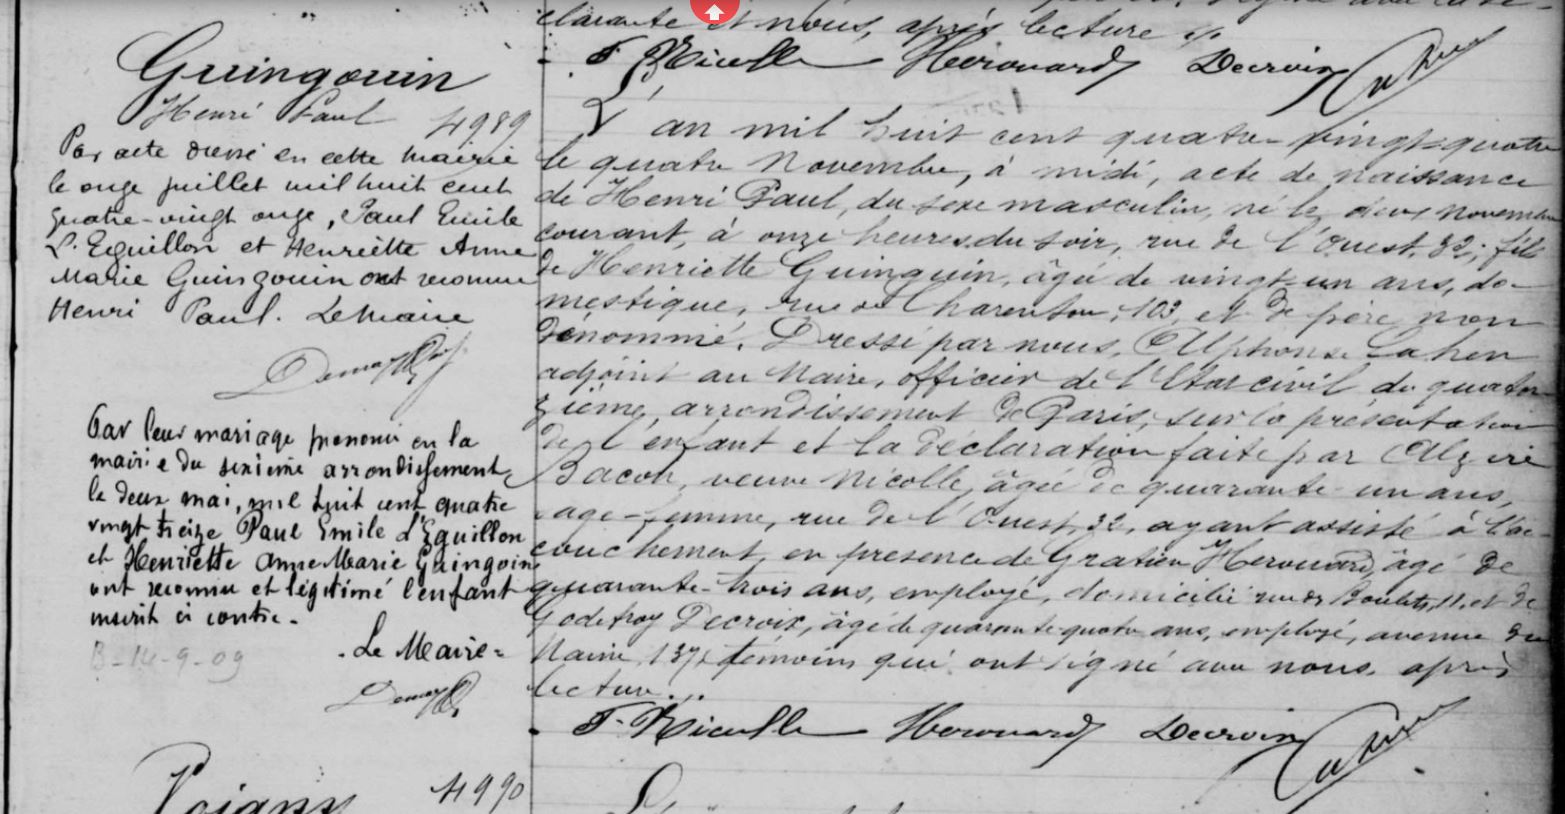 clarante et nous, après lecture
F. Nicolle Herouard Decroix
Guingouin
Henri Paul 4989
Par acte dressé en cette mairie
le onze juillet mil huit cent
quatre-vingt onze, Paul Emile
L'Eguillon et Henriette Anne
Marie Guingouin ont reconnu
Henri Paul. Le Maire
Par leur mariage prononcé en la
mairie du sixième arrondissement
le deux mai, mil huit cent quatre
vingt treize Paul Emile d'Eguillon
et Henriette Anne Marie Guingoin
ont reconnu et légitimé l'enfant
inscrit ci contre.
Le Maire
B-14-9-09
L'an mil huit cent quatre-vingt-quatre
le quatre Novembre, à midi, acte de naissance
de Henri Paul, du sexe masculin, né le deux novembre
courant, à onze heures du soir, rue de l'Ouest, 32; fils
de Henriette Guinguin, âgée de vingt-un ans, do-
mestique, rue de Charenton, 103, et de père non
dénommé. Dressé par nous, Alphonse Cahen
adjoint au Maire, officier de l'Etat civil du quator
zième, arrondissement de Paris, sur la présentation
de l'enfant et la déclaration faite par Alzire
Bacon, veuve Nicolle, âgée de quarante-un ans,
sage-femme, rue de l'Ouest, 32, ayant assisté à l'ac-
couchement, en présence de Gratien Herouard, âgé de
quarante-trois ans, employé, domicilié rue des Boulets, 11, et de
Godefroy Decroix, âgé de quarante-quatre ans, employé, avenue du
Maine, 137, témoins qui ont signé avec nous, après
lecture.
F. Nicolle Herouard Decroix
4990